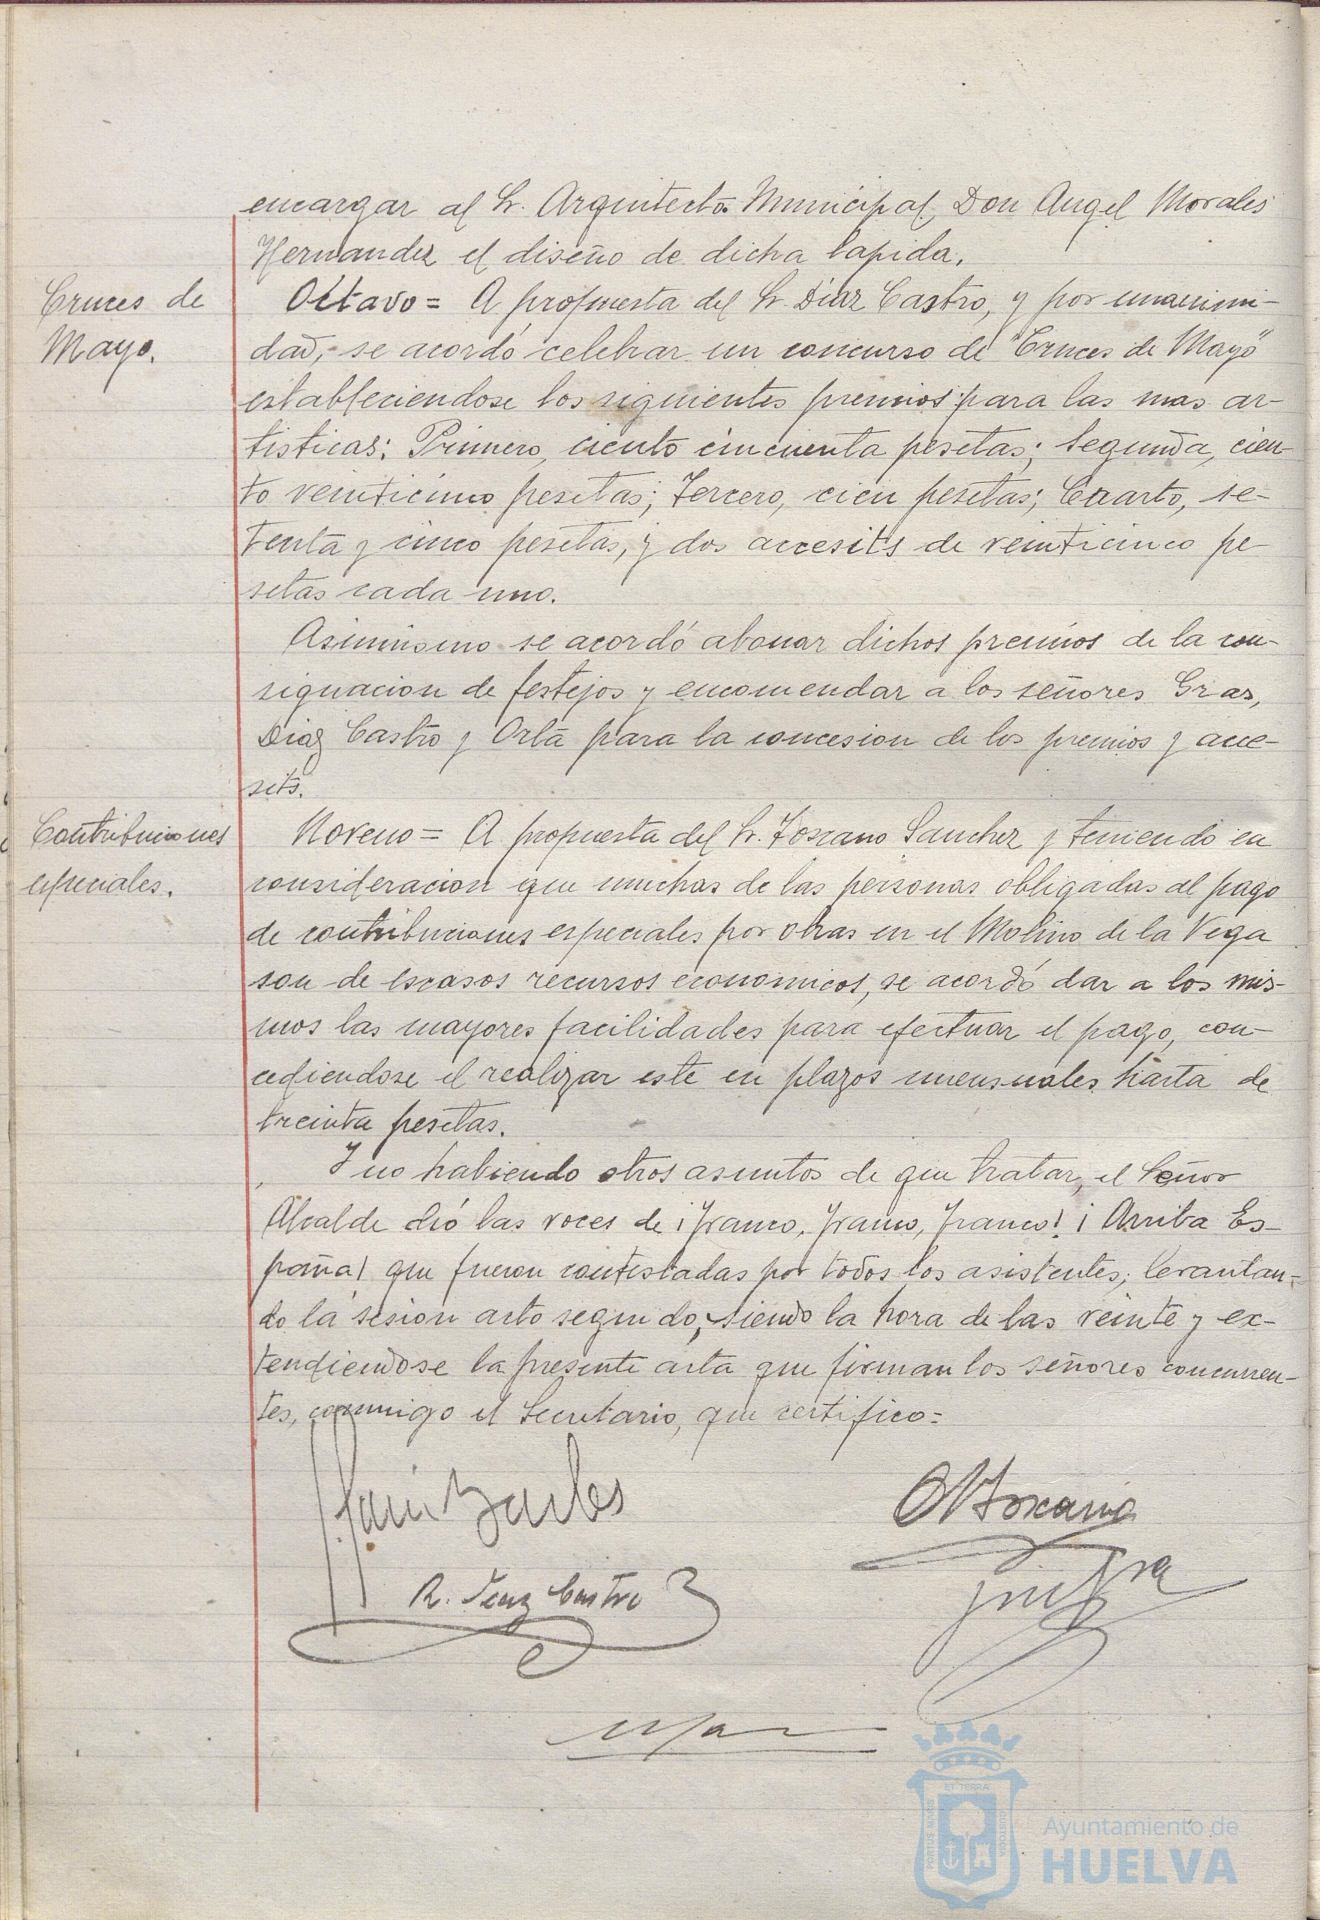 encargar al Sr. Arquitecto Municipal Don Angel Morales
Hernandez el diseño de dicha lapida.
Cruces de
Mayo.
Octavo= A propuesta del Sr. Diaz Castro, y por unanimi-
dad, se acordó celebrar un concurso de "Cruces de Mayo"
estableciendose los siguientes premios para las mas ar-
tisticas: Primero, ciento cincuenta pesetas; Segundo, cien-
to veinticinco pesetas; Tercero, cien pesetas; Cuarto, se-
tenta y cinco pesetas, y dos accesits de veinticinco pe-
setas cada uno.
Asimismo se acordó abonar dichos premios de la con-
signacion de festejos y encomendar a los señores Gras,
Diaz Castro y Orta para la concesion de los premios y acce-
sits.
Contribuciones
especiales.
Noveno= A propuesta del Sr. Toscano Sanchez y teniendo en
consideracion que muchas de las personas obligadas al pago
de contribuciones especiales por obras en el Molino de la Vega
son de escasos recursos economicos, se acordó dar a los mis-
mos las mayores facilidades para efectuar el pago, con-
cediendose el realizar este en plazos mensuales hasta de
treinta pesetas.
Y no habiendo otros asuntos de que tratar, el Señor
Alcalde dió las voces de ¡Franco, Franco, Franco! ¡Arriba Es-
paña! que fueron contestadas por todos los asistentes, levantan-
do la sesion acto seguido, siendo la hora de las veinte y ex-
tendiendose la presente acta que firman los señores concurren-
tes, conmigo el Secretario, que certifico=
Toscano
R. Diaz Castro
PORTUS MARIS
ET TERRAE
CUSTODIA
Ayuntamiento de
HUELVA